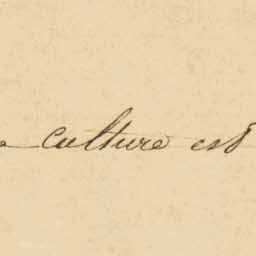 culture est